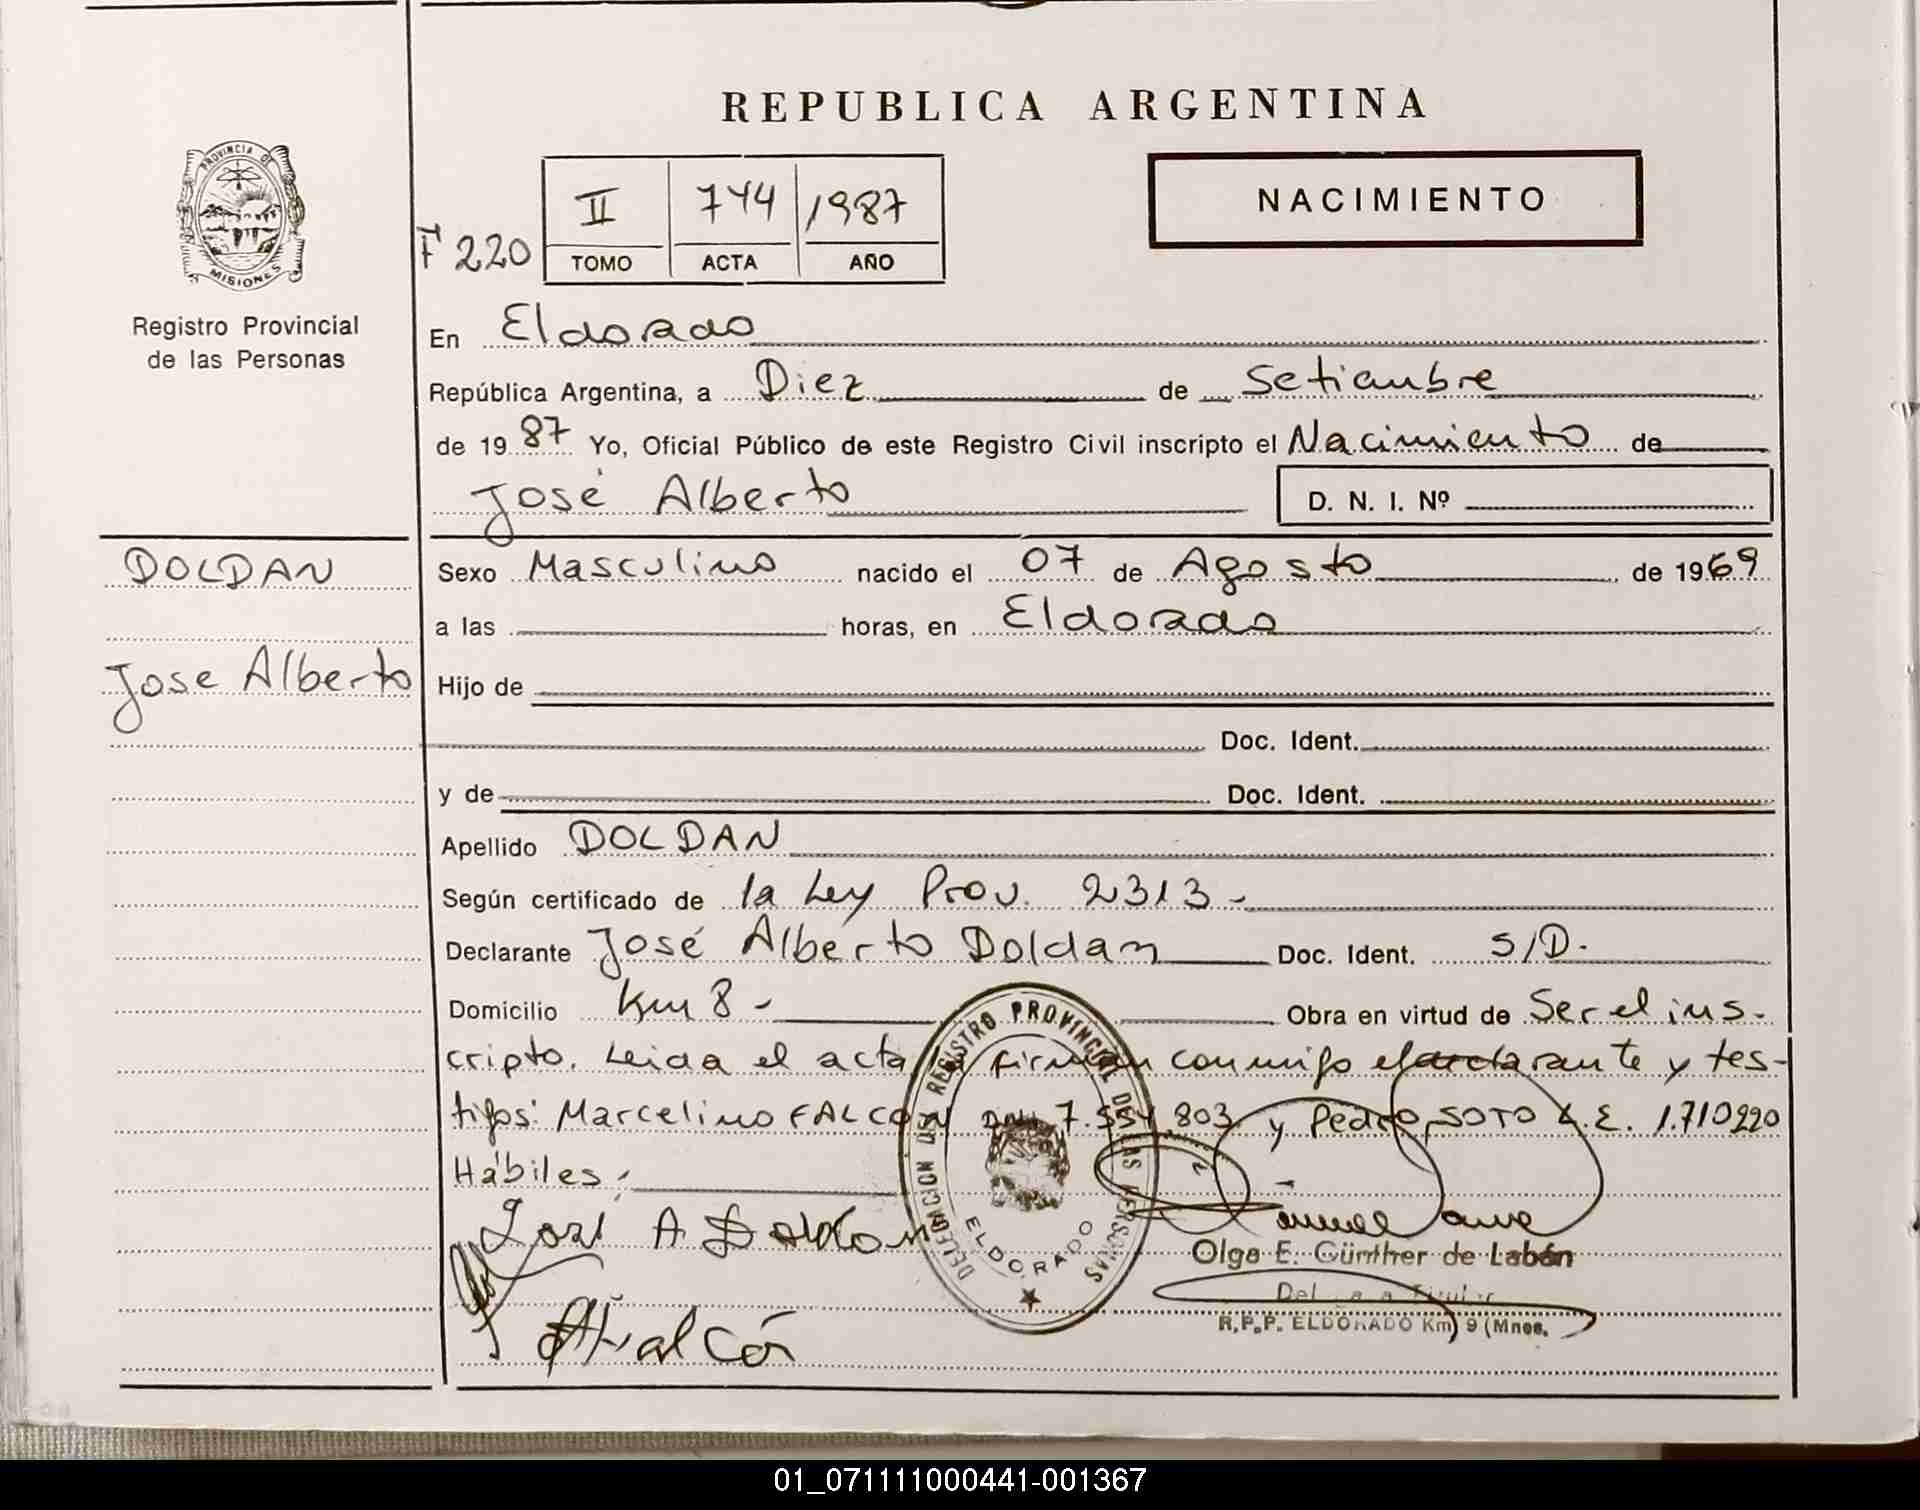 REPUBLICA ARGENTINA
PROVINCIA DE
MISIONES
Registro Provincial
de las Personas
F 220
II 744 1987
TOMO ACTA AÑO
NACIMIENTO
En Eldorado
República Argentina, a Diez de Setiembre
de 1987 Yo, Oficial Público de este Registro Civil inscripto el Nacimiento de
José Alberto D. N. I. Nº
DOLDAN
Jose Alberto
Sexo Masculino nacido el 07 de Agosto de 1969
a las horas, en Eldorado
Hijo de
Doc. Ident.
y de Doc. Ident.
Apellido DOLDAN
Según certificado de la Ley Prov. 2313-
Declarante José Alberto Doldan Doc. Ident. S/D.
Domicilio Km 8 - Obra en virtud de Ser el ins-
cripto. Leida el acta, firman conmigo el declarante y tes-
tigos: Marcelino FALCON DNI 7.554.803 y Pedro SOTO L.E. 1.710220
Hábiles.-
José A Doldan
Falcón
DELEGACION DEL REGISTRO PROVINCIAL DE LAS PERSONAS
ELDORADO
Olga E. Günther de Labán
R.P.P. ELDORADO Km 9 (Mnes.
01_071111000441-001367